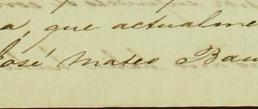 a, que actualme
José Mateo Bau